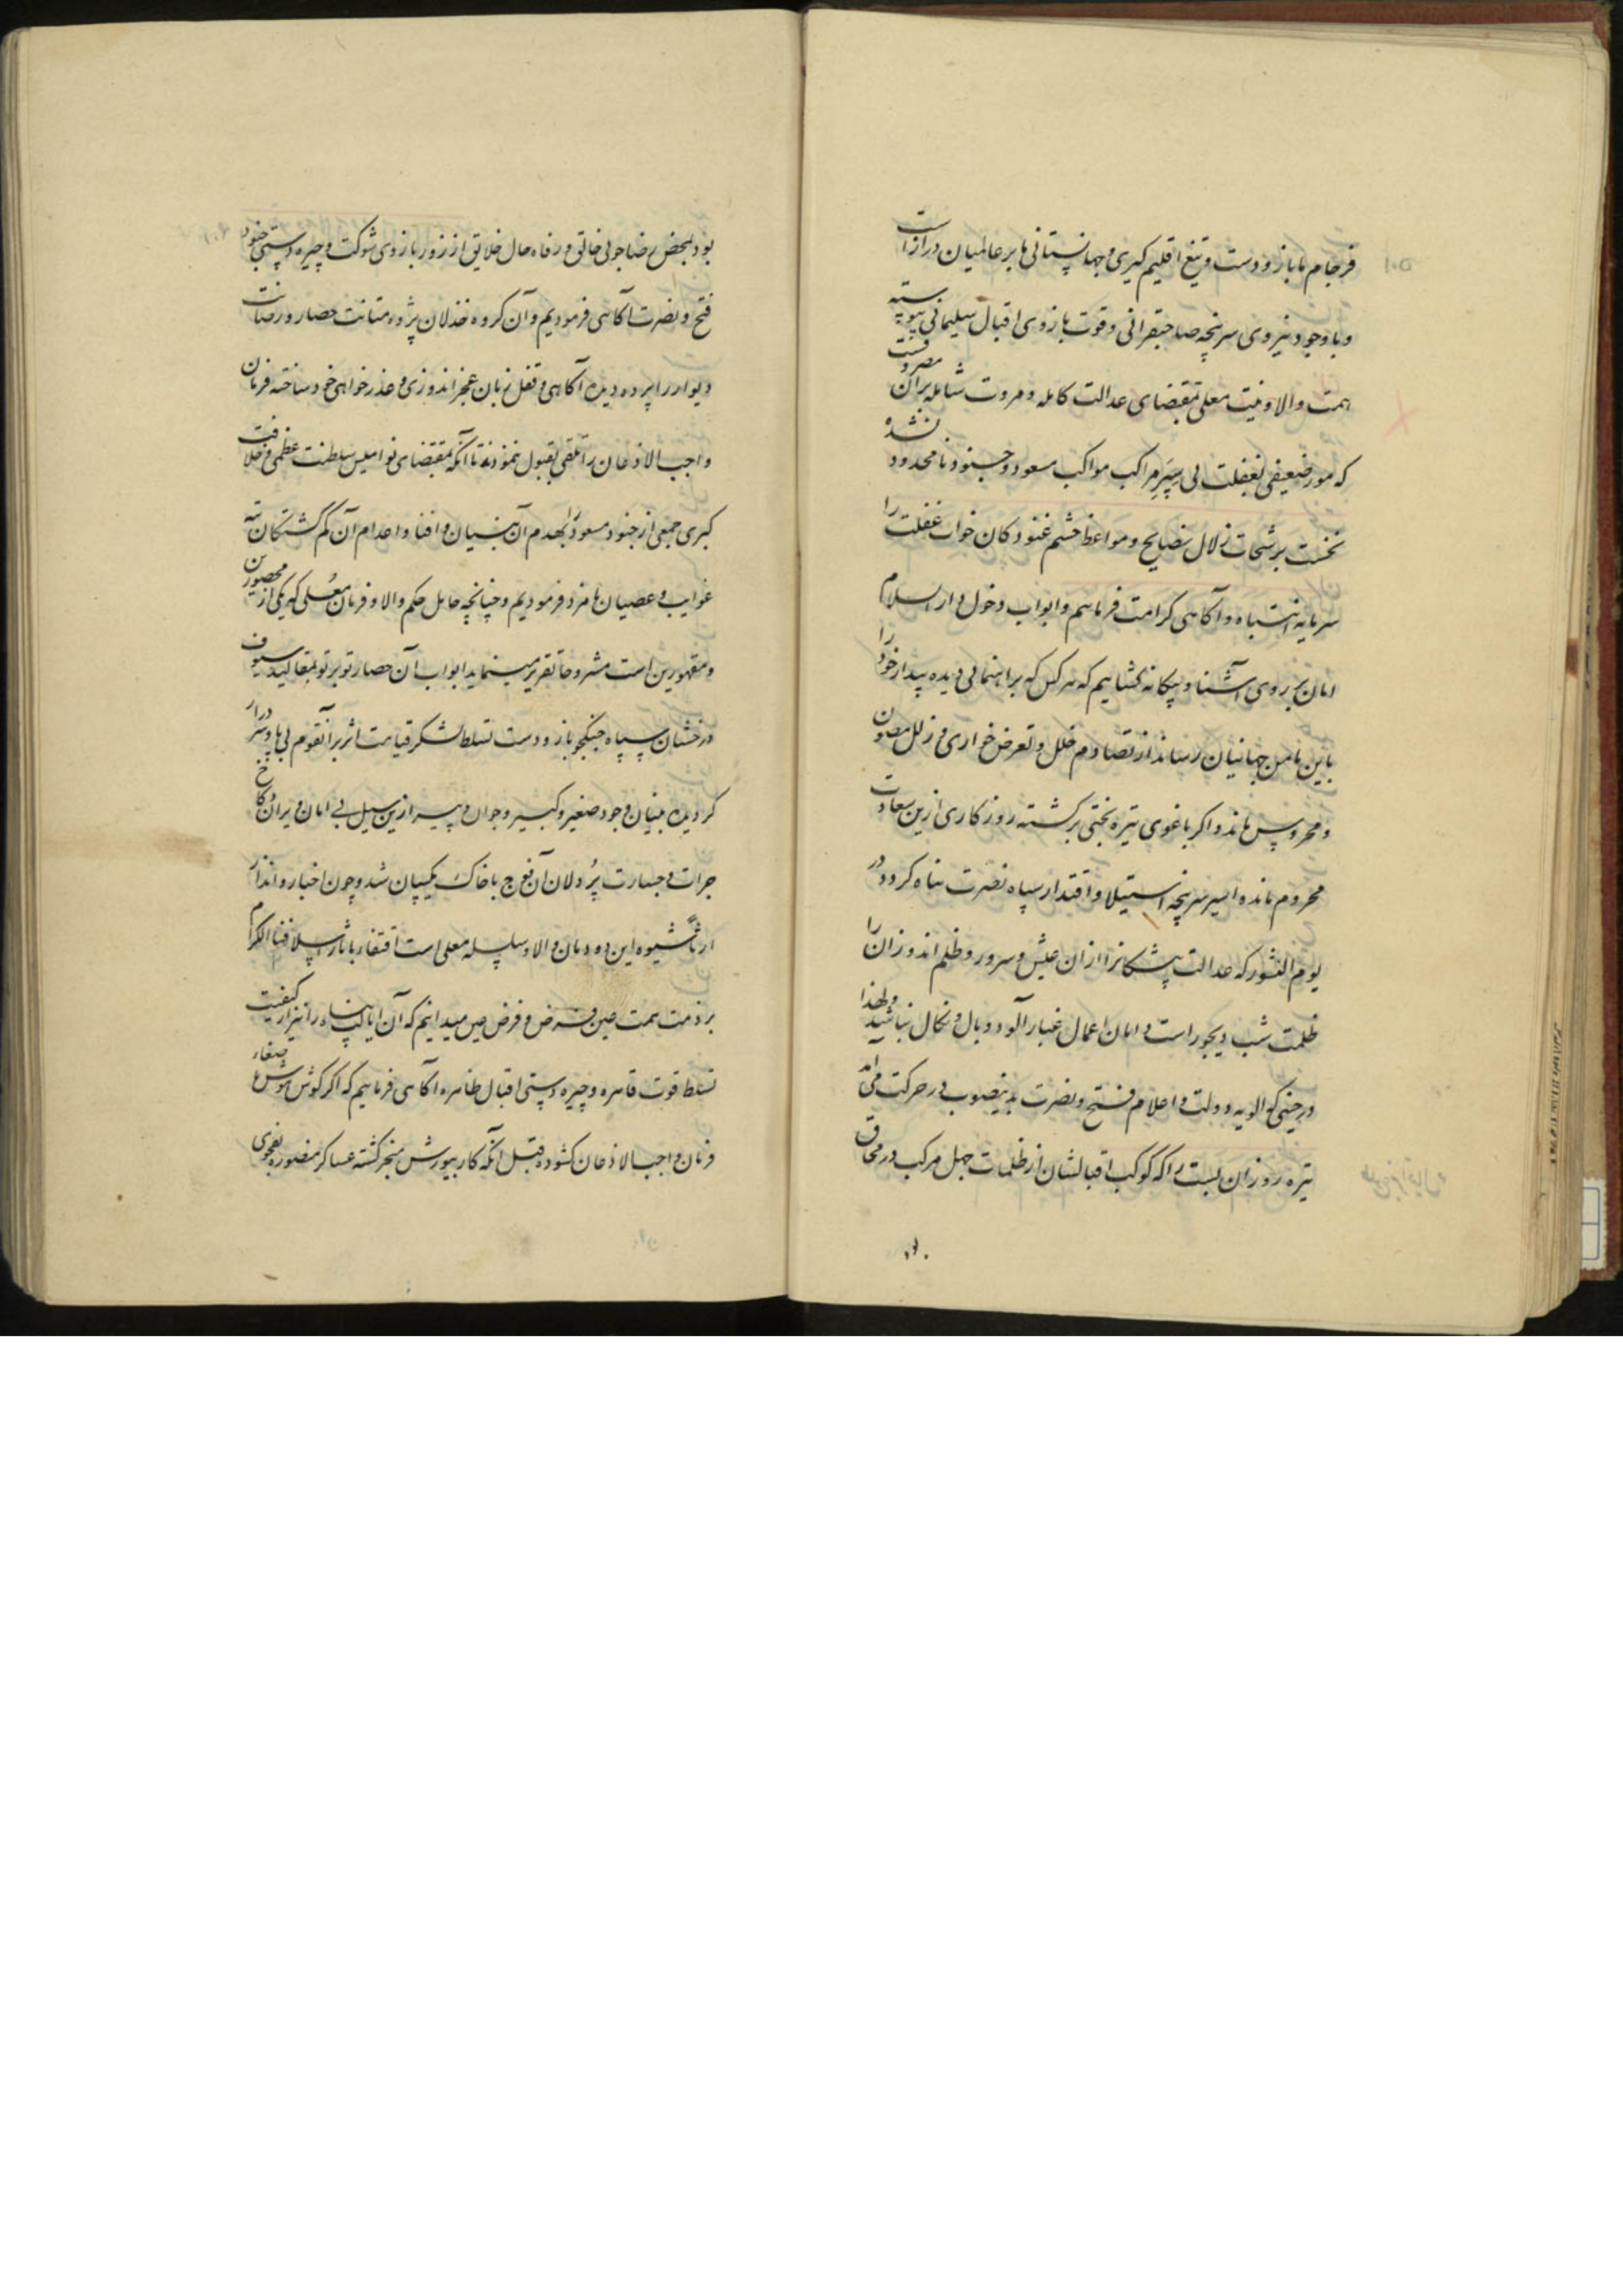 ۱۰۵
فرجام ما بازو دست و تیغ اقلیم کیری و جهانستانی ما بر عالمیان دراز است
و با وجود نیروی سرپنچه صاحبقرانی و قوت بازوی اقبال سلیمانی پیوسته
همت والا و نیت معلی بمقتضای عدالت کامله و مروت شامله بر آن مصروفست
که مور ضعیفی بغفلت پی سپر مراکب مواکب مسعود و جنود نامحدود نشده
نخست برشحات زلال نصایح و مواعظ چشم غنودکان خواب غفلت را
سرمایه انتباه و آکاهی کرامت فرماییم و ابواب دخول دار السلام
امان بر روی آشنا و بیکانه بکشاییم که هر کس که براهنمائی دیده بیدار خود را
باین مامن جهانیان رساند از تصادم خلل و تعرض خواری و زلل مصون
و محروس ماند و اکر باغوی تیره بختی برکشته روزکاری ازین سعادت
محروم مانده اسیر سرپنچه استیلا و اقتدار سپاه نصرت پناه کردد در
یوم النشور که عدالت پیشکانرا ازان عیش و سرور و ظلم اندوزان را
ظلمت شب دیجور است دامان اعمال غبار آلود وبال و نکال نباشد و لهذا
در حینی که الویه دولت و اعلام فتح و نصرت بد ینصوب در حرکت می آمد
تیره روزان بست را که کوکب اقبالشان از ظلمات جهل مرکب در محاق
بود بمحض رضاجوئی خالق و رفاه حال خلایق از زور بازوی شوکت و چیره دستی جنود
فتح و نصرت آکاهی فرمودیم و آن کروه خذلان پژوه متانت حصار و رصانت
دیوار را پرده دیده آکاهی و قفل زبان عجز اندوزی و عذر خواهی خود ساخته فرمان
واجب الاذعان را تلقی بقبول ننمودند تا آنکه بمقتضای نوامیس سلطنت عظمی و خلافت
کبری جمعی از جنود مسعود را بهدم آن بنیان و افنا و اعدام آن کم کشتکان تیه
غوایت و عصیان نامزد فرمودیم و چنانچه حامل حکم والا و فرمان معلی که یکی از محصورین
و مقهورین است مشروحا تقریر مینماید ابواب آن حصار تو بر تو بمقالید سیوف
درخشان سپاه جنکجو باز و دست تسلط لشکر قیامت اثر بر آنقوم بی پا و سر دراز
کردیده بنیان وجود صغیر و کبیر و جوان و پیر ازین سیل بی امان ویران و کاخ
جرات و جسارت پر دلان آن فوج با خاک یکسان شد و چون اخبار و انذار
ارثا شیوه این دودمان والا و سلسله معلی است اقتفاء باثار اسلافنا الکرام
بر ذمت همت عین فرض و فرض عین میدانیم که آن ایالت پناه را نیز از کیفیت
تسلط قوت قاهره و چیره دستی اقبال ظاهره آکاهی فرماییم که اکر کوش هوش باصغاء
فرمان واجب الاذعان کشوده قبل از آنکه کار بیورش منجر کشته عساکر منصوره بفحوی